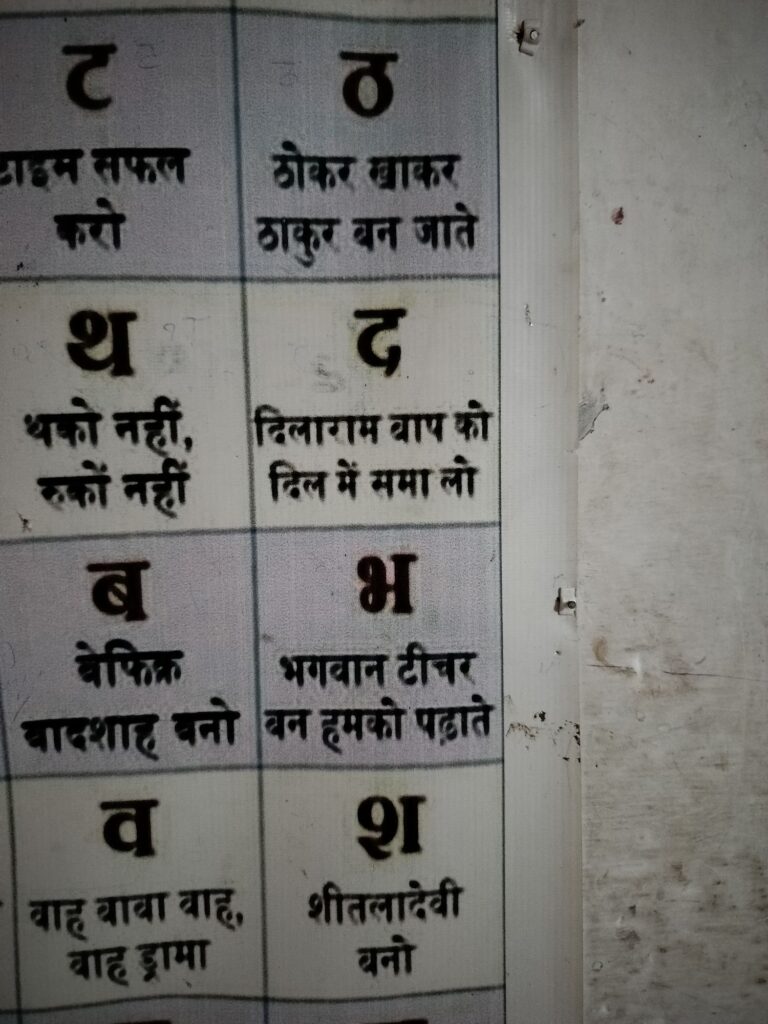 ट
टाइम सफल
करो
ठ
ठोकर खाकर
ठाकुर बन जाते
थ
थको नहीं,
रुकों नहीं
द
दिलाराम बाप को
दिल में समा लो
ब
बेफिक्र
बादशाह बनो
भ
भगवान टीचर
बन हमको पढ़ाते
व
वाह बाबा वाह,
वाह ड्रामा
श
शीतलादेवी
बनो